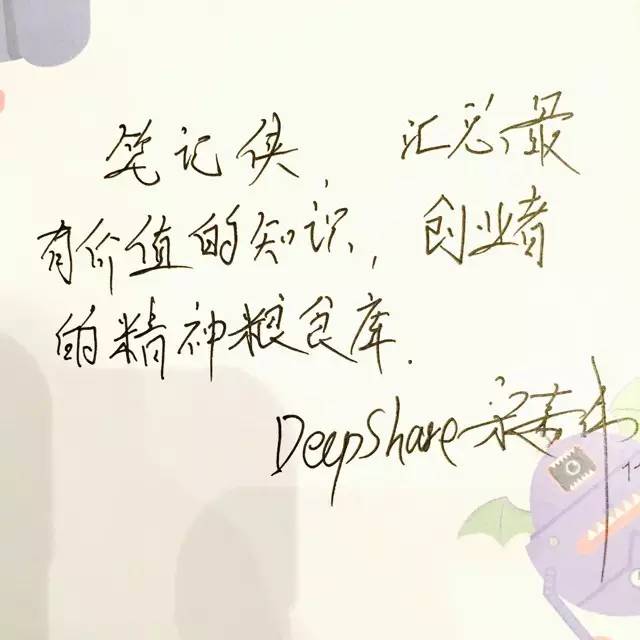 笔记侠, 汇总最
有价值的知识, 创业者
的精神粮食库.
DeepShare